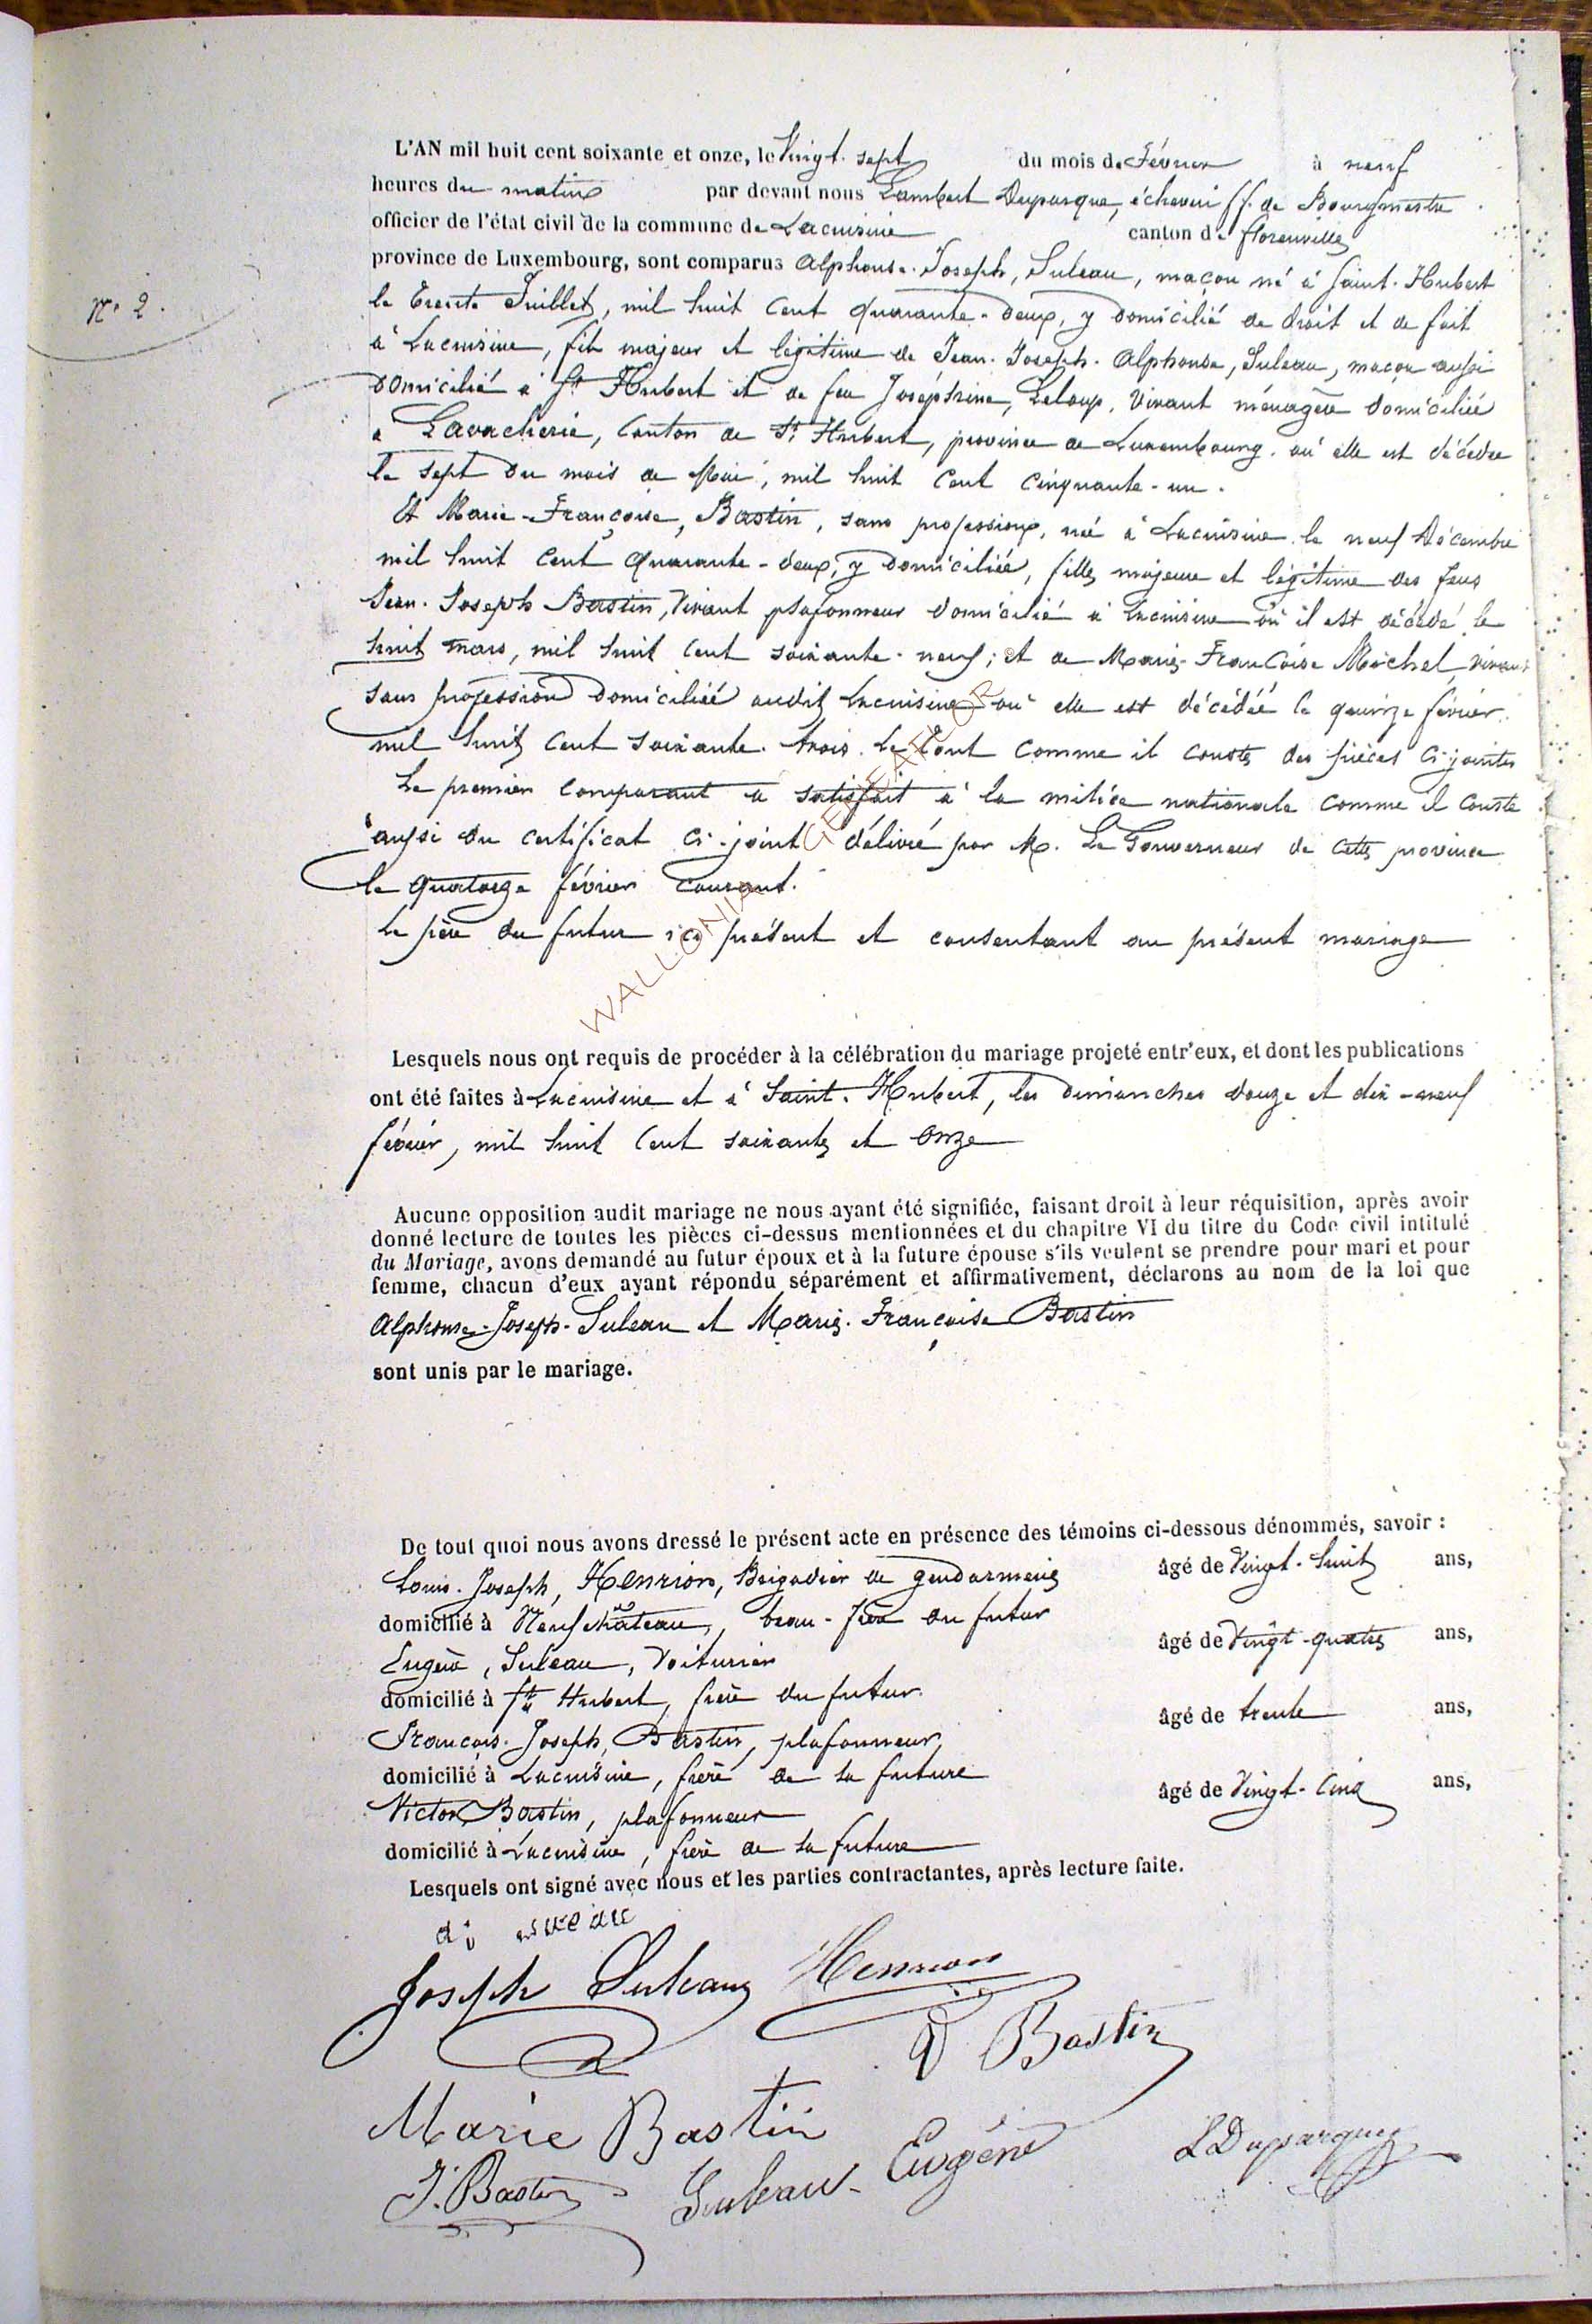 L'AN mil huit cent soixante et onze, le Vingt-sept du mois de Février à neuf
heures du matin par devant nous Lambert Duparque, échevin ff. de Bourgmestre
officier de l'état civil de la commune de Lacuisine canton de florenville
N° 2.
province de Luxembourg, sont comparus Alphonse-Joseph, Suleau, maçon né à Saint-Hubert
le Trente Juillet, mil huit cent quarante-deux, y domicilié de droit et de fait
à Lacuisine, fils majeur et légitime de Jean-Joseph-Alphonse, Suleau, maçon aussi
domicilié à St Hubert et de feu Joséphine, Leloup, Vivant ménagère domiciliée
à Lavacherie, Canton de St Hubert, province de Luxembourg, où elle est décédée
le sept du mois de Mai, mil huit cent cinquante-un.
Et Marie-Françoise, Bastin, sans profession, née à Lacuisine le neuf Décembre
mil huit cent quarante-deux, y domiciliée, fille majeure et légitime des feus
Jean-Joseph Bastin, Vivant plafonneur domicilié à Lacuisine où il est décédé le
huit mars, mil huit cent soixante-neuf; et de Marie-Françoise Michel, vivant
sans profession domiciliée audit Lacuisine où elle est décédée le quinze février
mil huit cent soixante-trois. Le tout comme il conste des pièces ci-jointes
Le premier comparant a satisfait à la milice nationale comme il conste
aussi du certificat ci-joint délivré par M. Le Gouverneur de cette province
le quatorze février courant.
Le père du futur ici présent et consentant au présent mariage
WALLONIA GENEAL OR
Lesquels nous ont requis de procéder à la célébration du mariage projeté entr'eux, et dont les publications
ont été faites à Lacuisine et à Saint-Hubert, les dimanches douze et dix-neuf
février, mil huit cent soixante et onze
Aucune opposition audit mariage ne nous ayant été signifiée, faisant droit à leur réquisition, après avoir
donné lecture de toutes les pièces ci-dessus mentionnées et du chapitre VI du titre du Code civil intitulé
du Mariage, avons demandé au futur époux et à la future épouse s'ils veulent se prendre pour mari et pour
femme, chacun d'eux ayant répondu séparément et affirmativement, déclarons au nom de la loi que
Alphonse-Joseph-Suleau et Marie-Françoise Bastin
sont unis par le mariage.
De tout quoi nous avons dressé le présent acte en présence des témoins ci-dessous dénommés, savoir :
Louis-Joseph, Henrion, Brigadier de gendarmerie âgé de Vingt-huit ans,
domicilié à Neufchâteau, beau-frère du futur
Eugène, Suleau, Voiturier âgé de Vingt-quatre ans,
domicilié à St Hubert, frère du futur.
François-Joseph, Bastin, plafonneur âgé de trente ans,
domicilié à Lacuisine, frère de la future
Victor Bastin, plafonneur âgé de Vingt-Cinq ans,
domicilié à Lacuisine, frère de la future
Lesquels ont signé avec nous et les parties contractantes, après lecture faite.
suleau
Joseph Suleau Henrion
V Bastin
Marie Bastin
J. Bastin Suleau Eugéne LDuparque